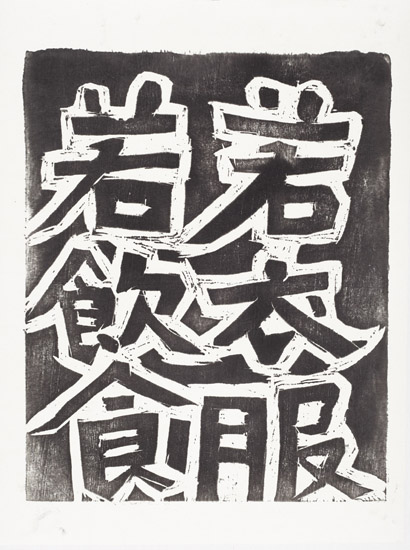 若衣服
若飲食